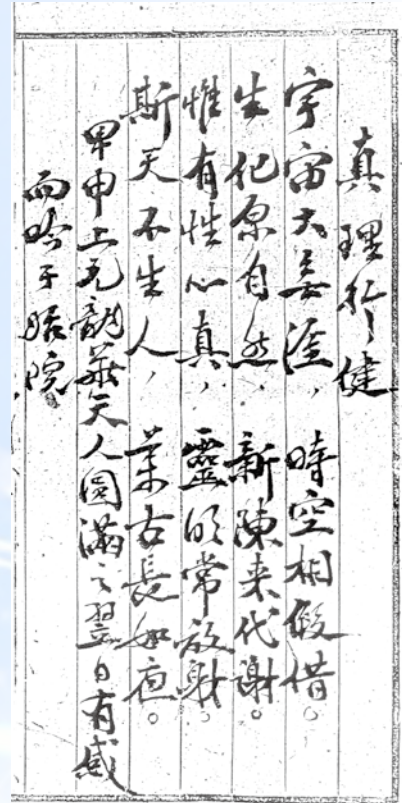 真理於健
宇宙大無涯，時空相假借。
生化原自然，新陳來代謝。
惟有性心真，靈明常放射。
斯天不生人，萬古長如夜。
甲申上元朝叢天人圓滿之翌日有感
而吟于賬院